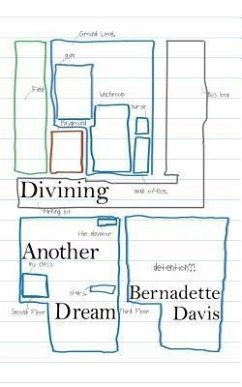 Ground Level
gym
Field
lunchroom
Bus line
nurse
Playground
main office
Divining
Parking lot
the elevator
Another
my class
detention??
stairs
Dream
Bernadette
Second Floor
Third Floor
Davis